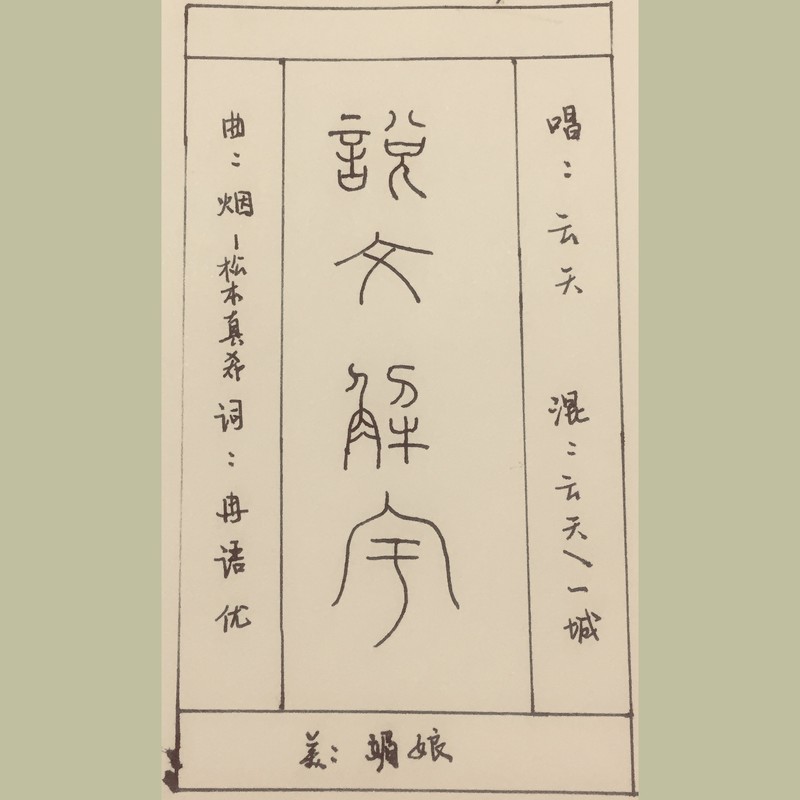 唱：云天 混：云天/一城
說文解宇
曲：烟-松本真希 词：冉语优
美：媚娘